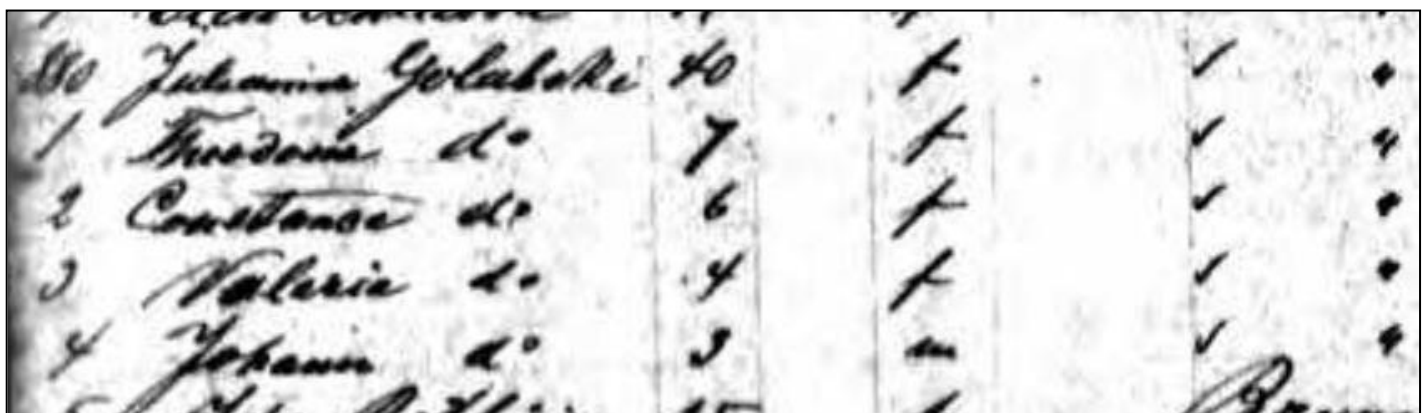 880 Julianna Golabski 40 f ✓ "
1 Theodosia do 7 f ✓ "
2 Constance do 6 f ✓ "
3 Valerie do 4 f ✓ "
4 Johann do 3 m ✓ "